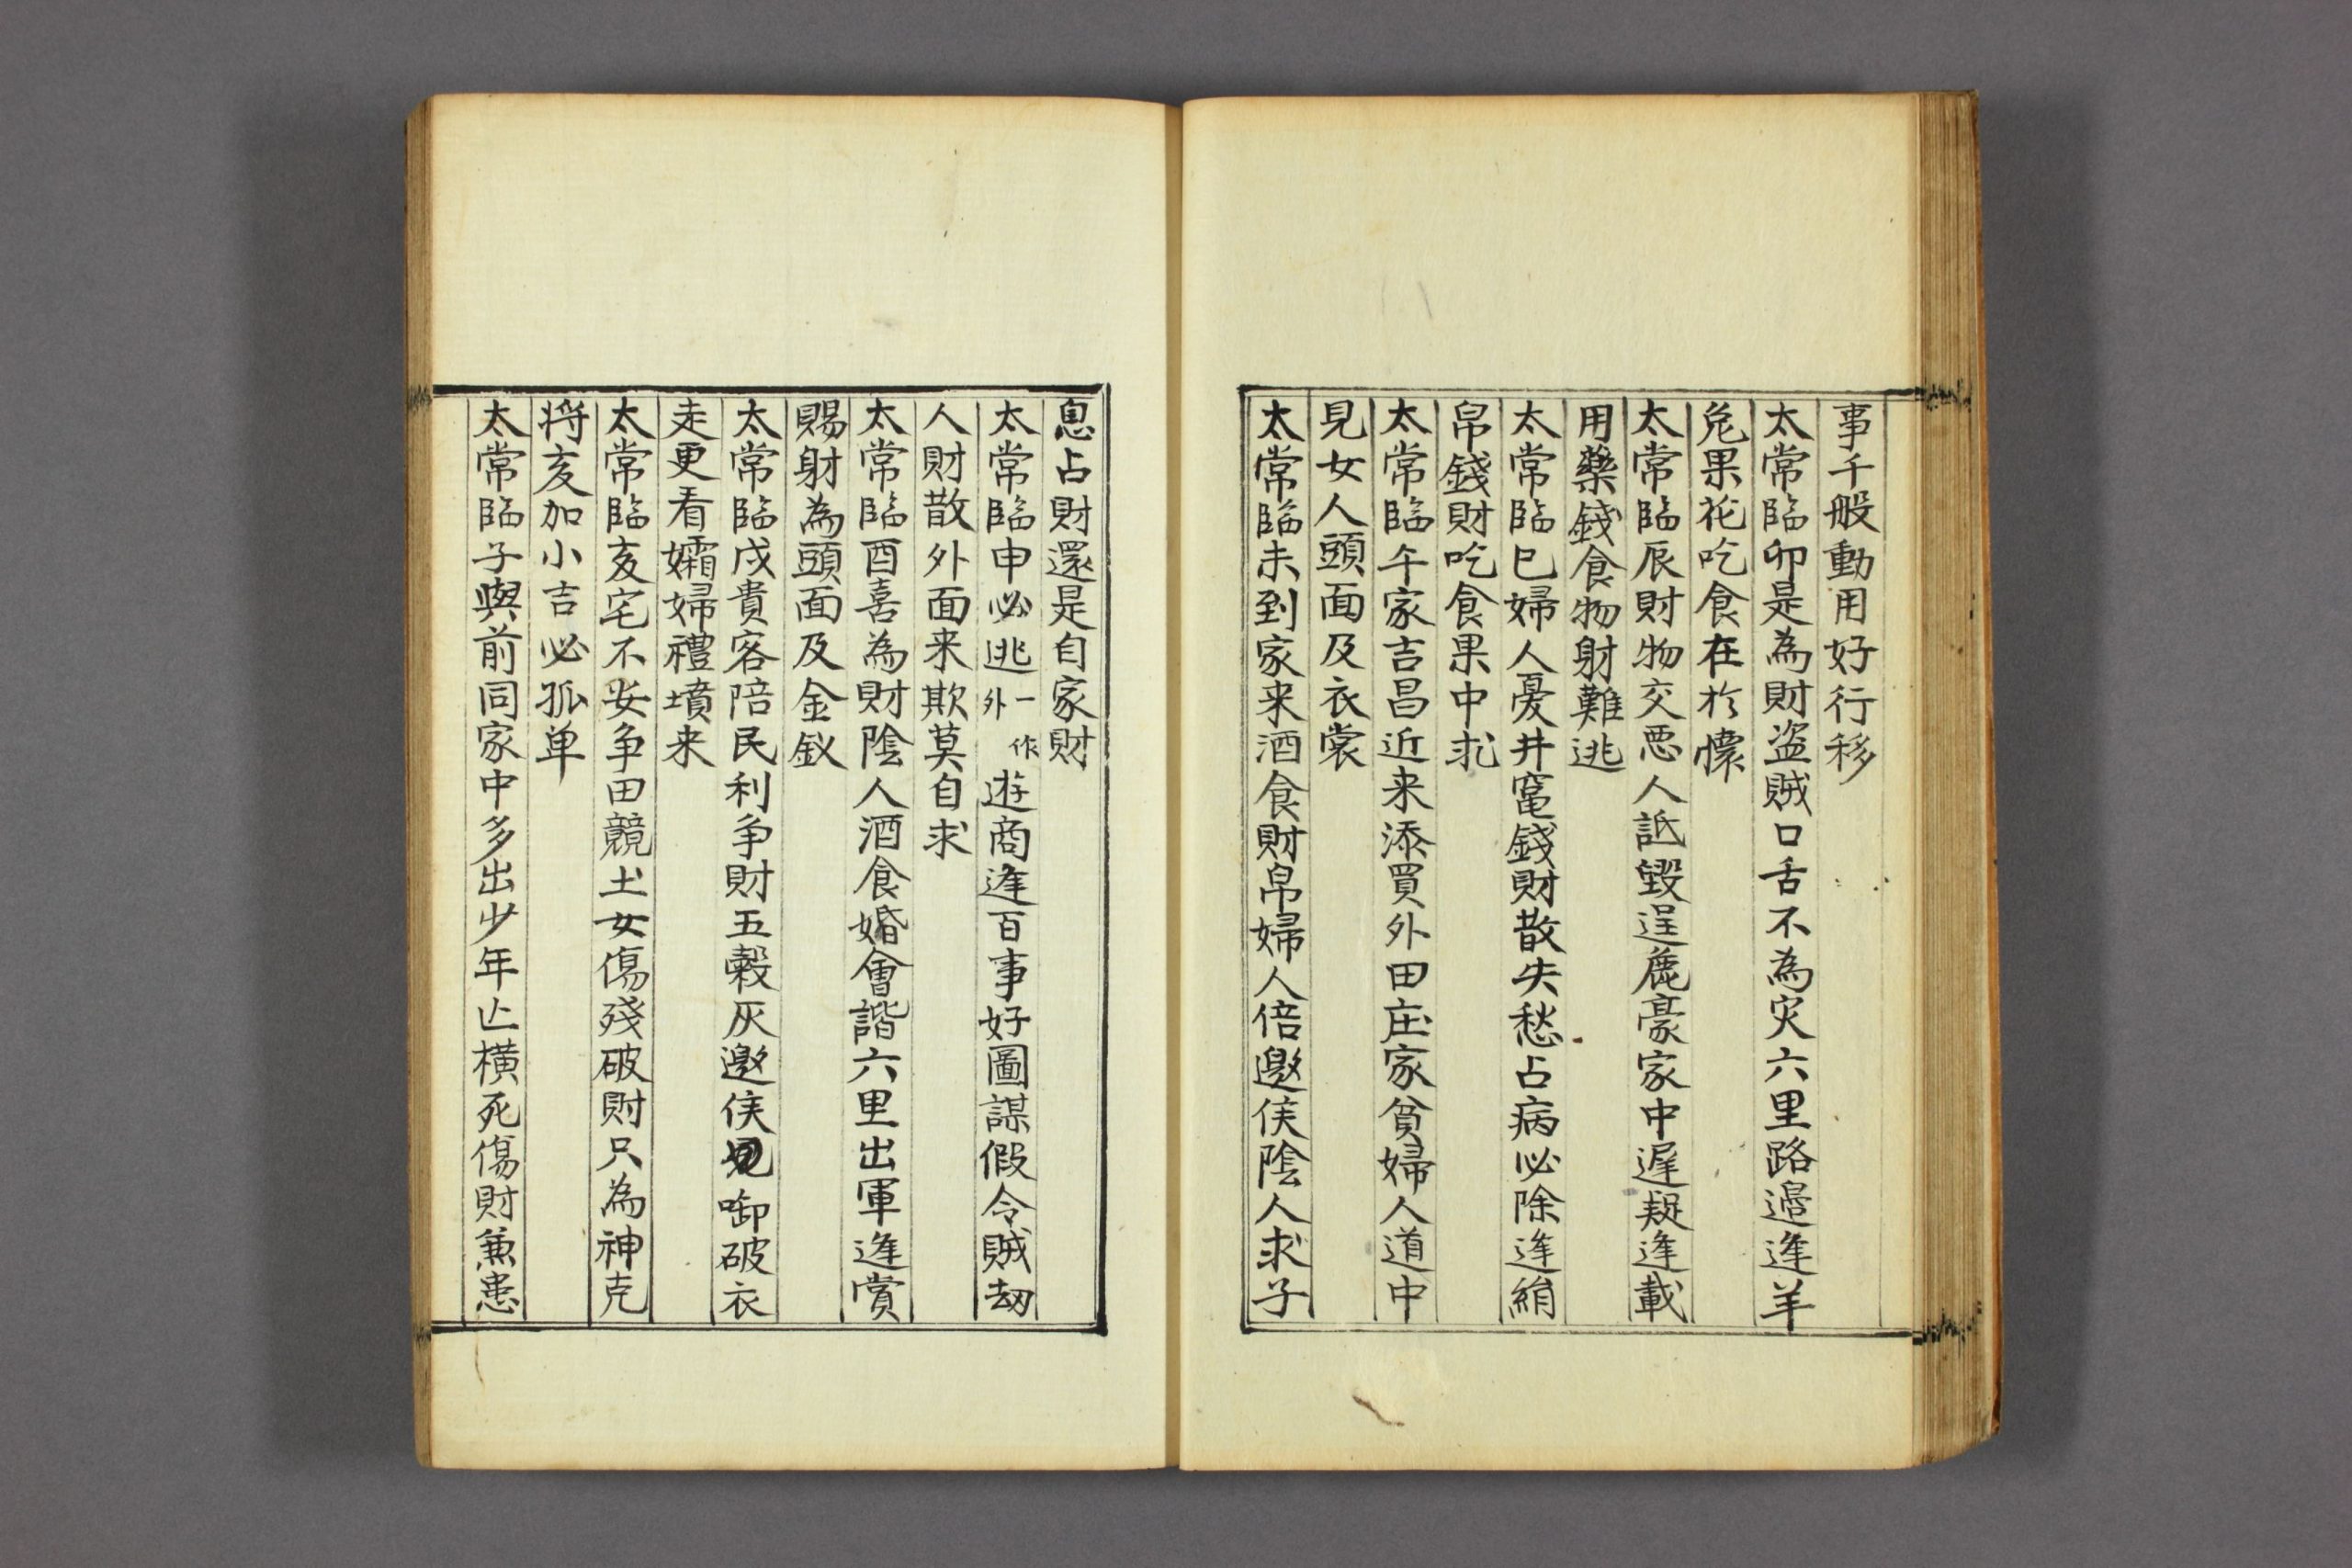 事千般動用好行移
太常臨卯是為財盗賊口舌不為灾六里路邉逢羊
兎果花吃食在於懷
太常臨辰財物交悪人詆毀逞麁豪家中遲疑逢載
用藥錢食物射難逃
太常臨巳婦人憂井窰錢財散失愁占病必除逢絹
帛錢財吃食果中求
太常臨午家吉昌近来添買外田庄家貧婦人道中
見女人頭面及衣裳
太常臨未到家来酒食財帛婦人倍邀侯陰人求子
息占財還是自家財
太常臨申必逃一作外遊商逢百事好圖謀假令賊刼
人財散外面来欺莫自求
太常臨酉喜為財陰人酒食婚會諧六里出軍逢賞
賜射為頭面及金釵
太常臨戌貴客陪民利争財五穀灰邀侯啣破衣
走更看孀婦禮墳来
太常臨亥宅不安争田競土女傷殘破財只為神克
将亥加小吉必孤单
太常臨子與前同家中多出少年亾横死傷財兼患